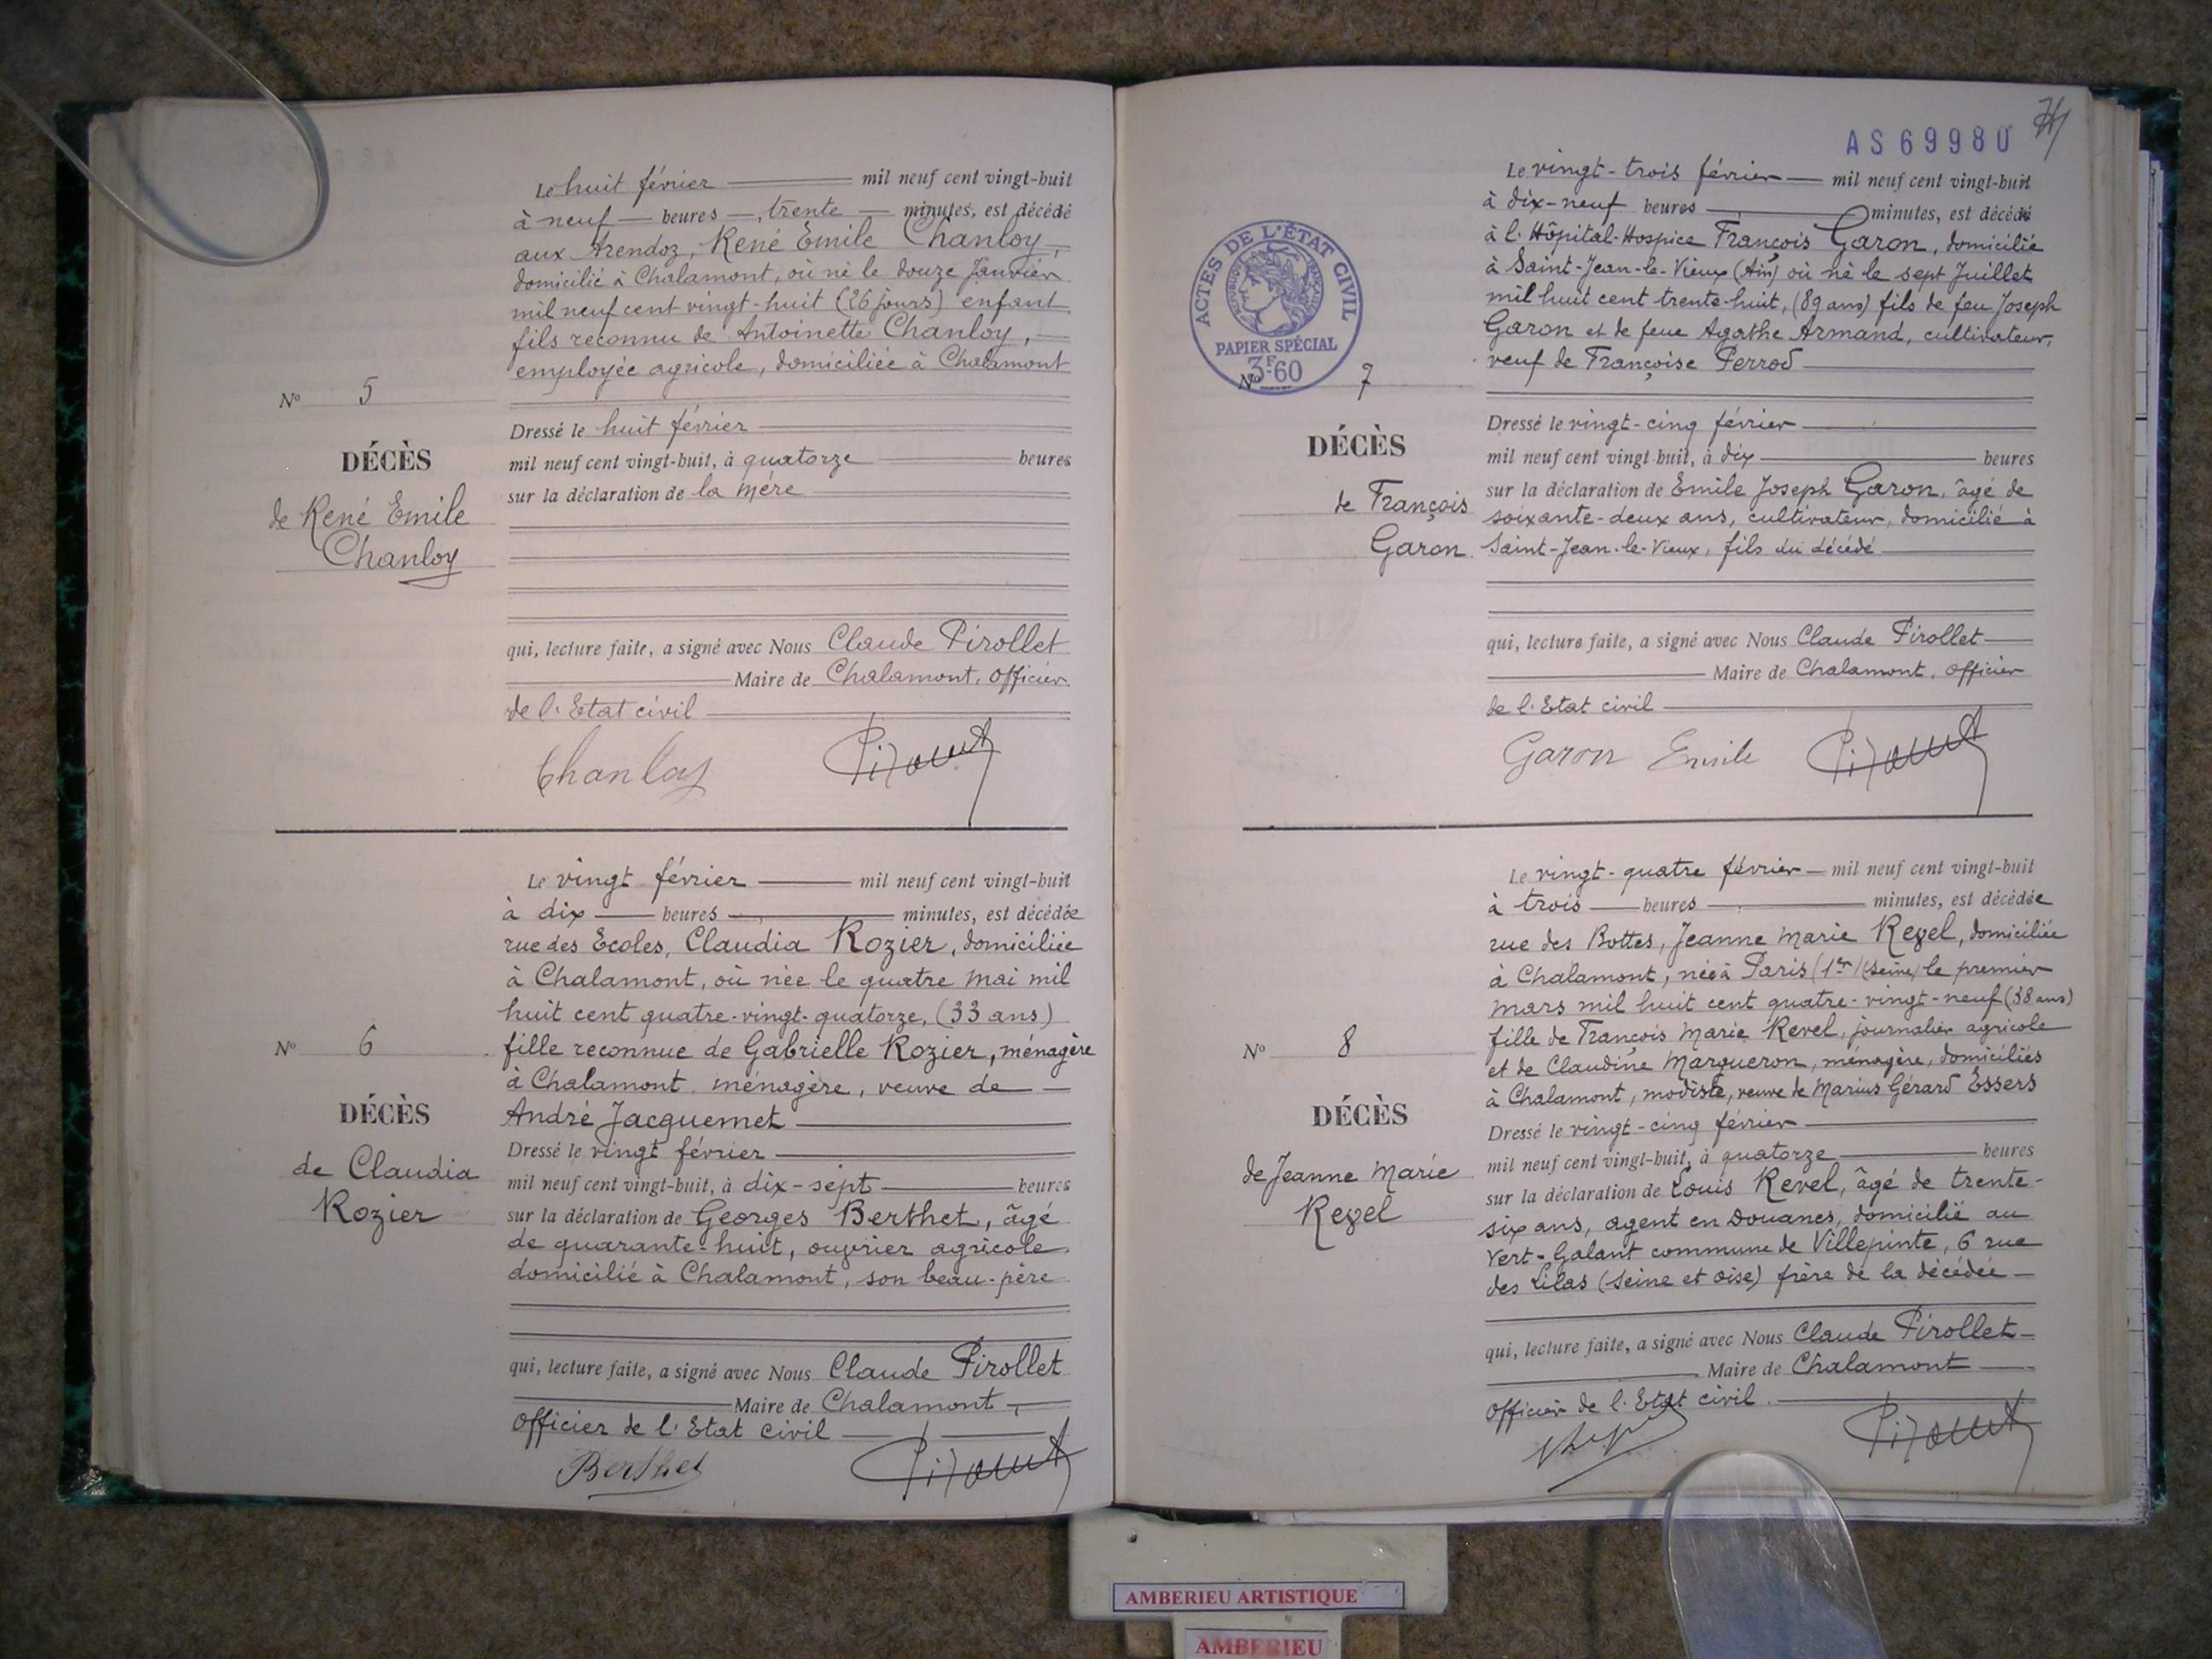 Le huit février mil neuf cent vingt-huit
à neuf heures, trente minutes, est décédé
aux Arendoz, René Emile Chanloy,
domicilié à Chalamont, où né le douze Janvier
mil neuf cent vingt-huit (26 jours) enfant
fils reconnu de Antoinette Chanloy,
employée agricole, domiciliée à Chalamont
N° 5
DÉCÈS
de René Emile
Chanloy
Dressé le huit février
mil neuf cent vingt-huit, à quatorze heures
sur la déclaration de la mère
qui, lecture faite, a signé avec Nous Claude Pirollet
Maire de Chalamont, Officier
de l'Etat civil
Chanloy
Le vingt février mil neuf cent vingt-huit
à dix heures minutes, est décédée
rue des Ecoles, Claudia Rozier, domiciliée
à Chalamont, où née le quatre Mai mil
huit cent quatre-vingt-quatorze, (33 ans)
fille reconnue de Gabrielle Rozier, ménagère
à Chalamont, ménagère, veuve de
André Jacquemet
N° 6
DÉCÈS
de Claudia
Rozier
Dressé le vingt février
mil neuf cent vingt-huit, à dix-sept heures
sur la déclaration de Georges Berthet, âgé
de quarante-huit, ouvrier agricole
domicilié à Chalamont, son beau-père
qui, lecture faite, a signé avec Nous Claude Pirollet
Maire de Chalamont
Officier de l'Etat civil
Berthet
AS 69980
Le vingt-trois février mil neuf cent vingt-huit
à dix-neuf heures minutes, est décédé
à l'Hôpital-Hospice François Garon, domicilié
à Saint-Jean-le-Vieux (Ain) où né le sept Juillet
mil huit cent trente-huit, (89 ans) fils de feu Joseph
Garon et de feue Agathe Armand, cultivateur,
veuf de Françoise Perrod
ACTES DE L'ÉTAT CIVIL
RÉPUBLIQUE FRANÇAISE
PAPIER SPÉCIAL
3F60
N° 7
DÉCÈS
de François
Garon
Dressé le vingt-cinq février
mil neuf cent vingt-huit, à dix heures
sur la déclaration de Emile Joseph Garon, âgé de
soixante-deux ans, cultivateur, domicilié à
Saint-Jean-le-Vieux, fils du décédé
qui, lecture faite, a signé avec Nous Claude Pirollet
Maire de Chalamont, Officier
de l'Etat civil
Garon Emile
Le vingt-quatre février mil neuf cent vingt-huit
à trois heures minutes, est décédée
rue des Bottes, Jeanne Marie Revel, domiciliée
à Chalamont, née à Paris (1er) (Seine) le premier
mars mil huit cent quatre-vingt-neuf (38 ans)
fille de François Marie Revel, journalier agricole
et de Claudine Margueron, ménagère, domiciliés
à Chalamont, modiste, veuve de Marius Gérard Essers
N° 8
DÉCÈS
de Jeanne Marie
Revel
Dressé le vingt-cinq février
mil neuf cent vingt-huit, à quatorze heures
sur la déclaration de Louis Revel, âgé de trente-
six ans, agent en Douanes, domicilié au
Vert-Galant commune de Villepinte, 6 rue
des Lilas (Seine et Oise) frère de la décédée
qui, lecture faite, a signé avec Nous Claude Pirollet
Maire de Chalamont
Officier de l'Etat civil
AMBERIEU ARTISTIQUE
AMBERIEU